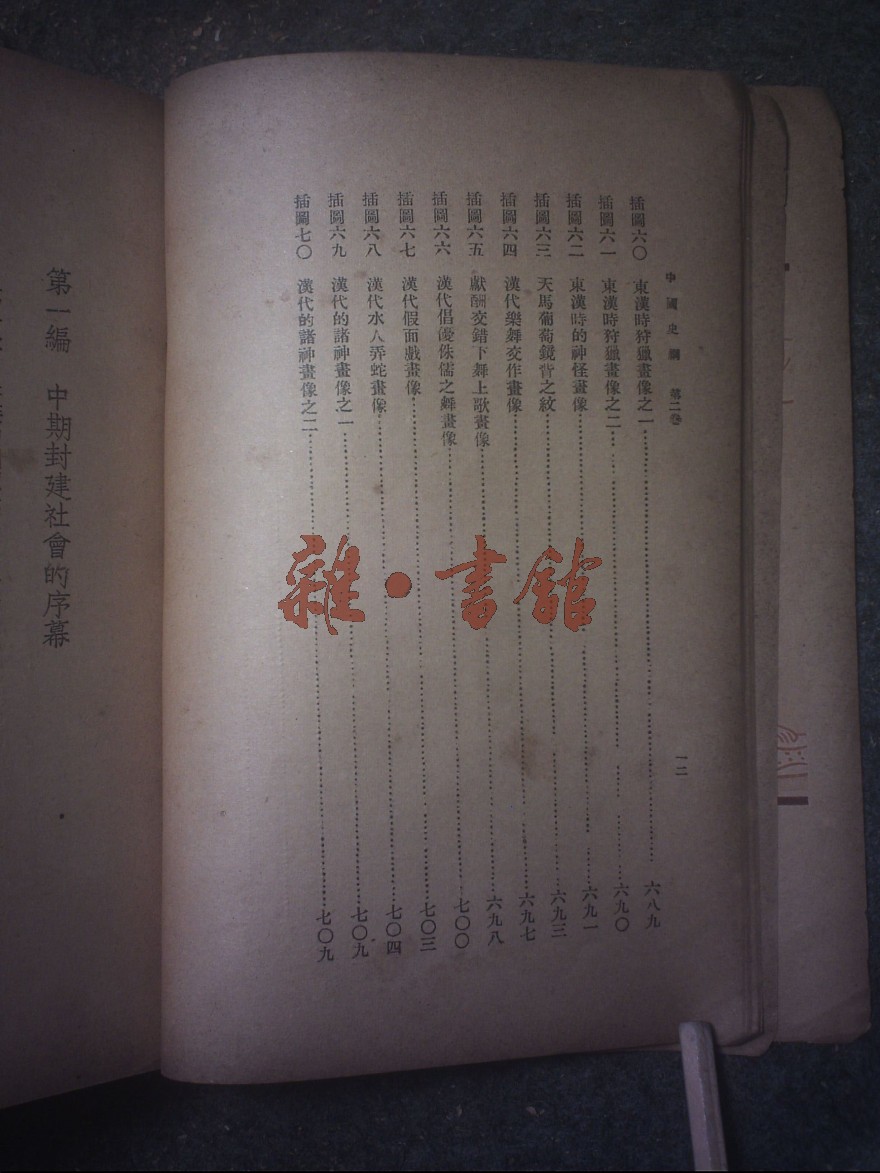 中國史綱 第二卷
一二
插圖六〇 東漢時狩獵畫像之一 六八九
插圖六一 東漢時狩獵畫像之二 六九〇
插圖六二 東漢時的神怪畫像 六九一
插圖六三 天馬葡萄鏡背之紋 六九三
插圖六四 漢代樂舞交作畫像 六九七
插圖六五 獻酬交錯下舞上歌畫像 六九八
插圖六六 漢代倡優侏儒之舞畫像 七〇〇
插圖六七 漢代假面戲畫像 七〇三
插圖六八 漢代水人弄蛇畫像 七〇四
插圖六九 漢代的諸神畫像之一 七〇九
插圖七〇 漢代的諸神畫像之二 七〇九
第一編 中期封建社會的序幕
雜·書館